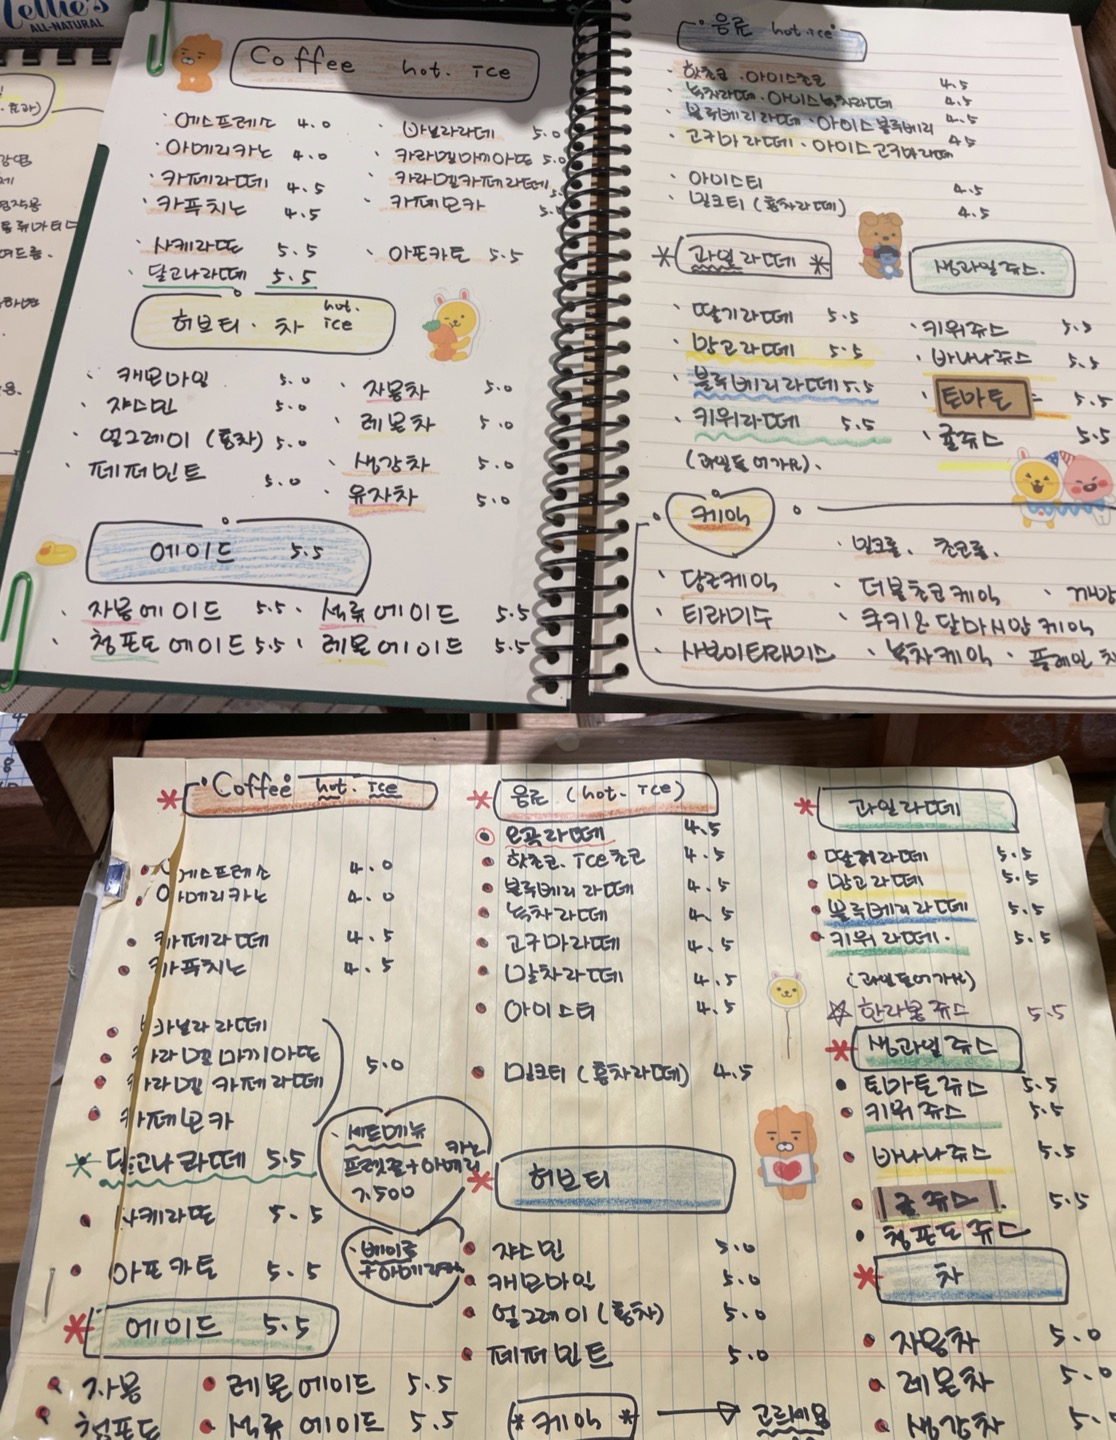 Nellie's
ALL-NATURAL
Coffee hot. Ice
에스프레소 4.0
아메리카노 4.0
카페라떼 4.5
카푸치노 4.5
사케라또 5.5
달고나라떼 5.5
바닐라라떼 5.0
카라멜마끼아또 5.0
카라멜카페라떼 5.
카페모카 5.0
아포카토 5.5
허브티 · 차 hot. Ice
캐모마일 5.0
쟈스민 5.0
얼그레이 (홍차) 5.0
페퍼민트 5.0
자몽차 5.0
레몬차 5.0
생강차 5.0
유자차 5.0
에이드 5.5
자몽에이드 5.5 · 석류에이드 5.5
청포도에이드 5.5 · 레몬에이드 5.5
음료 hot·ice
핫초코 · 아이스초코 4.5
녹차라떼 · 아이스녹차라떼 4.5
블루베리라떼 · 아이스블루베리 4.5
고구마라떼 · 아이스고구마라떼 4.5
아이스티 4.5
밀크티 (홍차라떼) 4.5
* 과일라떼 *
딸기라떼 5.5
망고라떼 5.5
블루베리라떼 5.5
키위라떼 5.5
(과일들어가요).
생과일쥬스.
키위쥬스 5.5
바나나쥬스 5.5
토마토 5.5
귤쥬스 5.5
케익
· 밀크롤. 초코롤.
당근케익 · 더블초코케익
티라미수 · 쿠키앤달마시안케익
· 녹차케익 · 플레인
* Coffee hot. Ice
에스프레소 4.0
아메리카노 4.0
카페라떼 4.5
카푸치노 4.5
바닐라라떼
카라멜마끼아또
카라멜 카페라떼
카페모카
5.0
* 달고나라떼 5.5
사케라또 5.5
아포카토 5.5
세트메뉴
프렛즐+아메리카노
7.500
베이글
+아메리카노
* 에이드 5.5
자몽 레몬에이드 5.5
청포도 석류에이드 5.5
* 음료 (hot. Ice)
오곡라떼 4.5
핫초코. Ice초코 4.5
블루베리라떼 4.5
녹차라떼 4.5
고구마라떼 4.5
말차라떼 4.5
아이스티 4.5
밀크티 (홍차라떼) 4.5
* 허브티
쟈스민 5.0
캐모마일 5.0
얼그레이 (홍차) 5.0
페퍼민트 5.0
* 케익 *
* 과일라떼
딸기라떼 5.5
망고라떼 5.5
블루베리라떼 5.5
키위라떼. 5.5
(과일들어가요)
☆ 한라봉쥬스 5.5
* 생과일쥬스
토마토쥬스 5.5
키위쥬스 5.5
바나나쥬스 5.5
귤쥬스. 5.5
청포도쥬스
* 차
자몽차 5.0
레몬차 5.0
생강차 5.